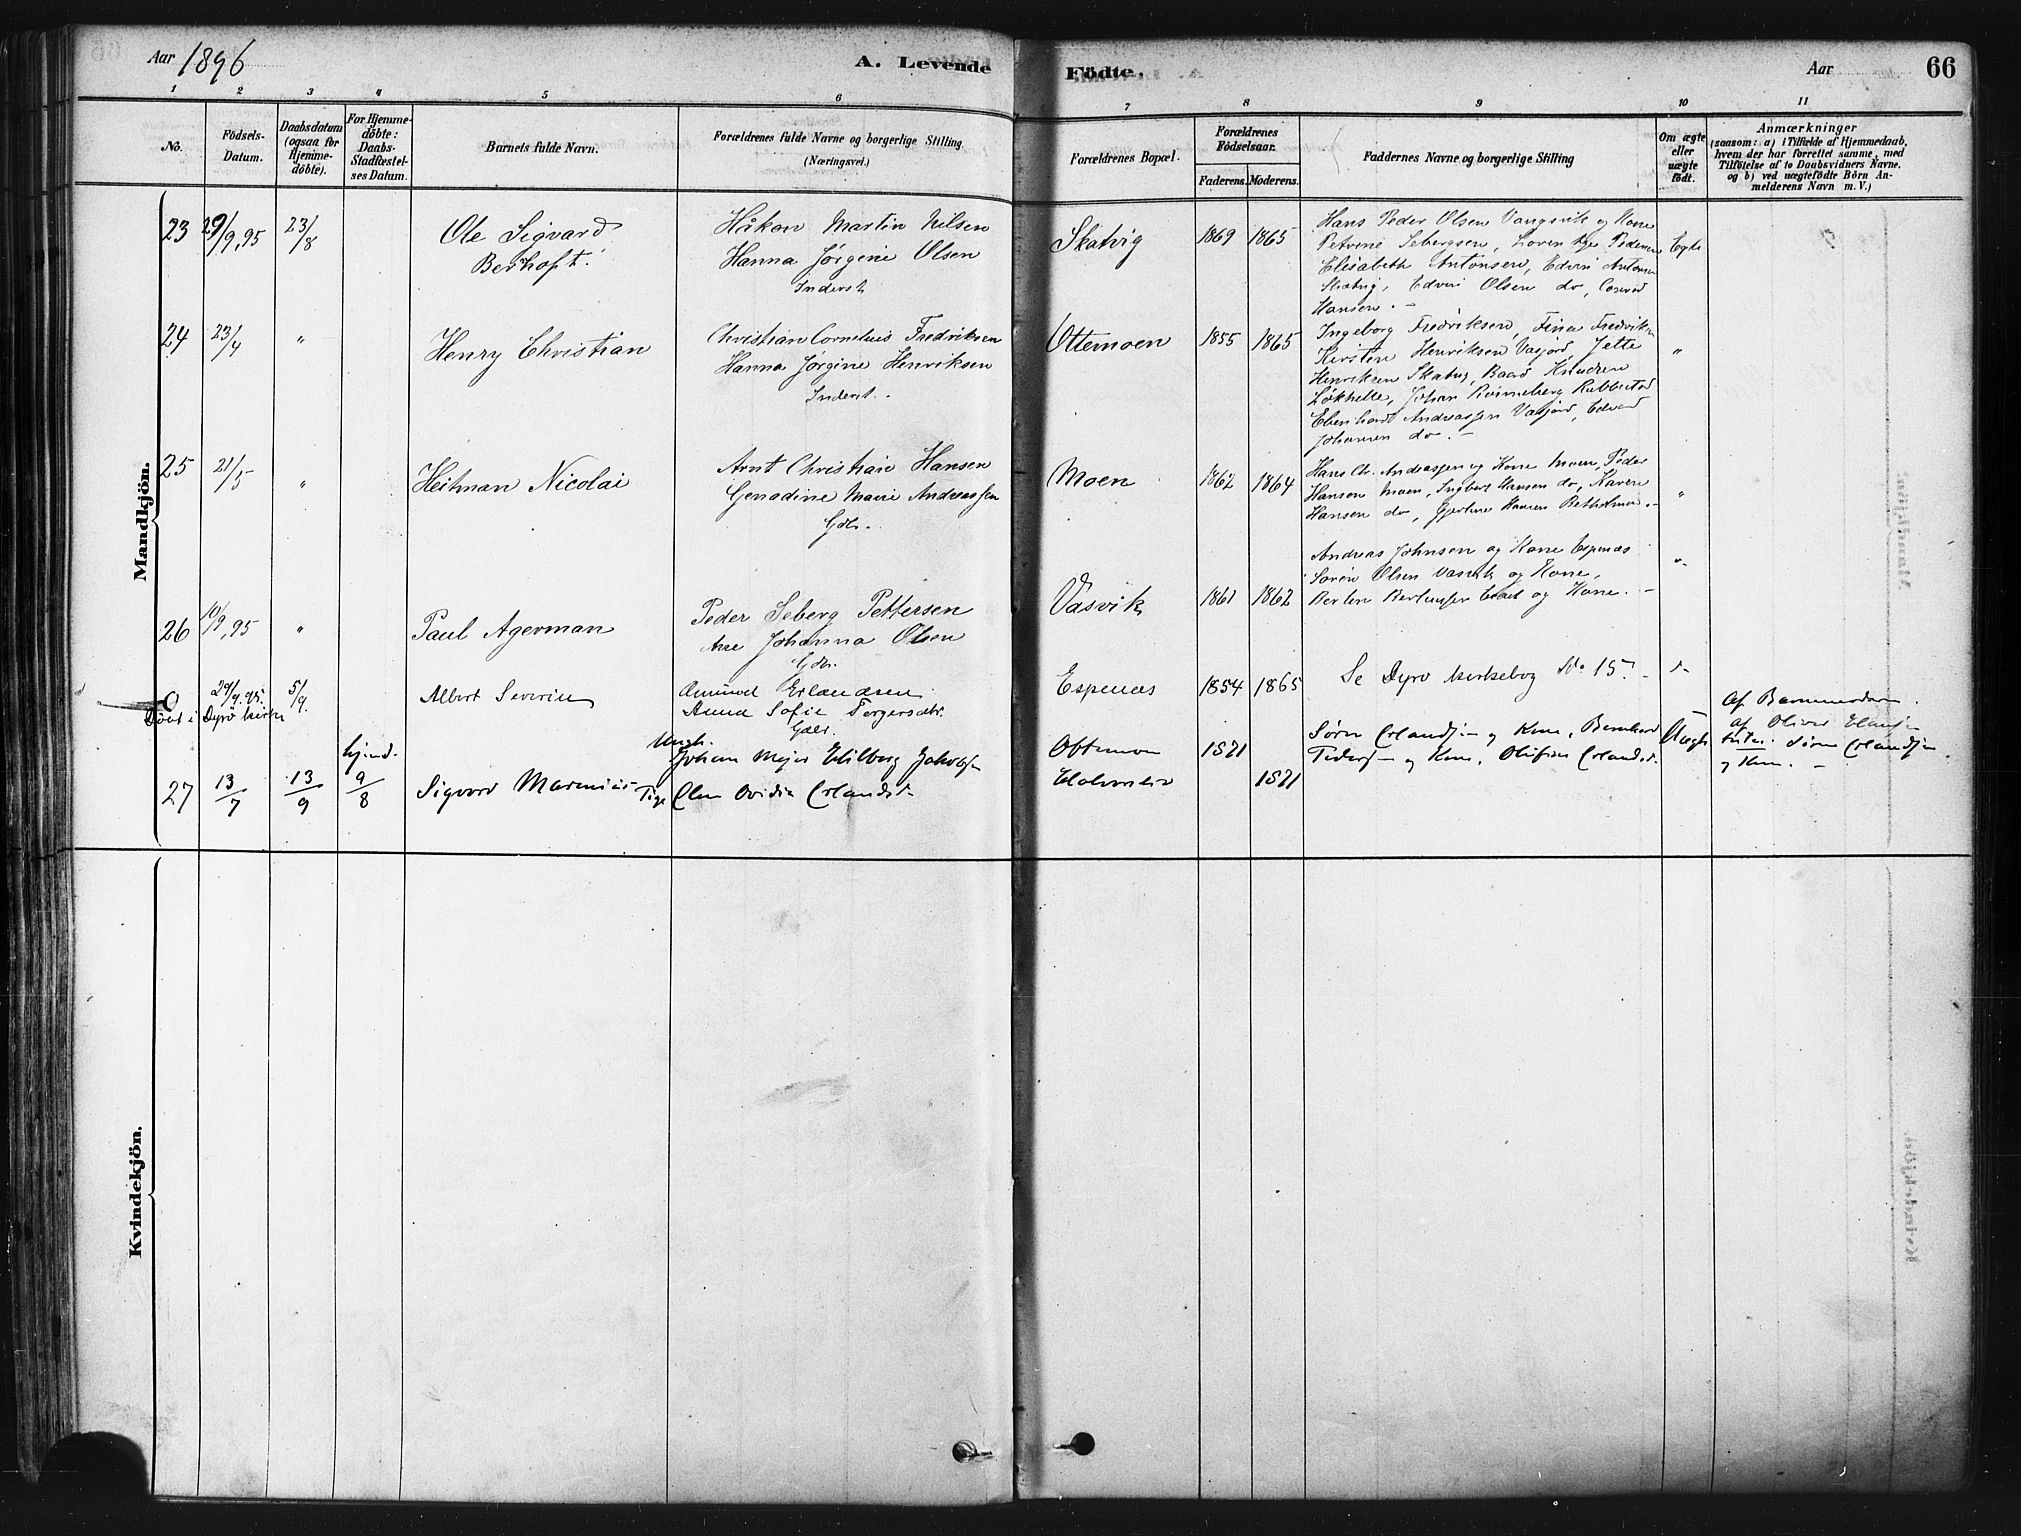 Aar 1896
A. Levende Födte.
Aar
66
1 2 3 4 5 6 7 8 9 10 11
No.
Födsels-
Datum.
Daabsdatum
(ogsaa for
Hjemme-
döbte).
For Hjemme-
döbte:
Daabs-
Stadfæstel-
ses Datum.
Barnets fulde Navn.
Forældrenes fulde Navne og borgerlige Stilling.
(Næringsvei.)
Forældrenes Bopæl.
Forældrenes
Födselsaar.
Faderens. Moderens.
Faddernes Navne og borgerlige Stilling
Om ægte
eller
uægte
födt.
Anmærkninger
(saasom: a) i Tilfælde af Hjemmedaab,
hvem der har forrettet samme, med
Tilföielse af to Daabsvidners Navne.
og b) ved uægtefödte Börn An-
melderens Navn m. V.)
Mandkjön.
23 29/9,95 23/8
Ole Sigvard
Berhoft.
Håkon Martin Nilsen
Hanna Jørgine Olsen
Inderst
Skatvig 1869 1865
Hans Peder Olsen Vangsvik og Kone
Petrine Sebergsen, Pedersen
Elisabeth Antonsen, Edvin Antonsen
Skatvig, Edvin Olsen do,
Hansen. -
Egte
24 23/4 "
Henry Christian
Christian Cornelius Fredriksen
Hanna Jørgine Henriksen
Inderst.
Ottemoen 1855 1865
Ingeborg Fredriksen, Fina Fredriksen
Kirsten Henriksen Vasjord, Jette
Henriksen Skatvig, Baard Knudsen
Løkhelle, Johan Kvinneberg Rubbestad
Eberhardt Andreassen Vasjord, Edvard
Johansen do. -
"
25 21/5 "
Heitman Nicolai
Arnt Christian Hansen
Genadine Marie Andreassen
Gdr.
Moen 1862 1864
Hans Chr. Andreassen og Kone Moen, Peder
Hansen Moen, Ingbert Hansen do, Karen
Hansen do, Hansen
"
26 10/9,95 "
Paul Agerman
Peder Seberg Pettersen
Ane Johanna Olsen
Gdr.
Vasvik 1861 1862
Andreas Johnsen og Kone Espenæs
Søren Olsen Vasvik og Kone,
Bertensen og Kone. -
"
0 29/9.95. 5/9.
Döbt i Dyrö Kirke
Albert Severin
Amund Erlandsen
Anna Sofie Torgersdtr.
Gdr.
Espenæs 1854 1865
Se Dyrö Kirkebog No 15.
27 13/7 13/9
hjmd.
9/8
Sigvard
Ungk.
Johan Mejer Hilberg Jakobs
Pige Olea Ovidia Erlandsd.
1871
1871
Søren Erlandsen og Kone, Bernhard
Pedersen og Kone, Erlandsd.
Uægte
Af Barnemoderen.
af Oliver
Søren Erlandsen
og Kone. -
Kvindekjön.